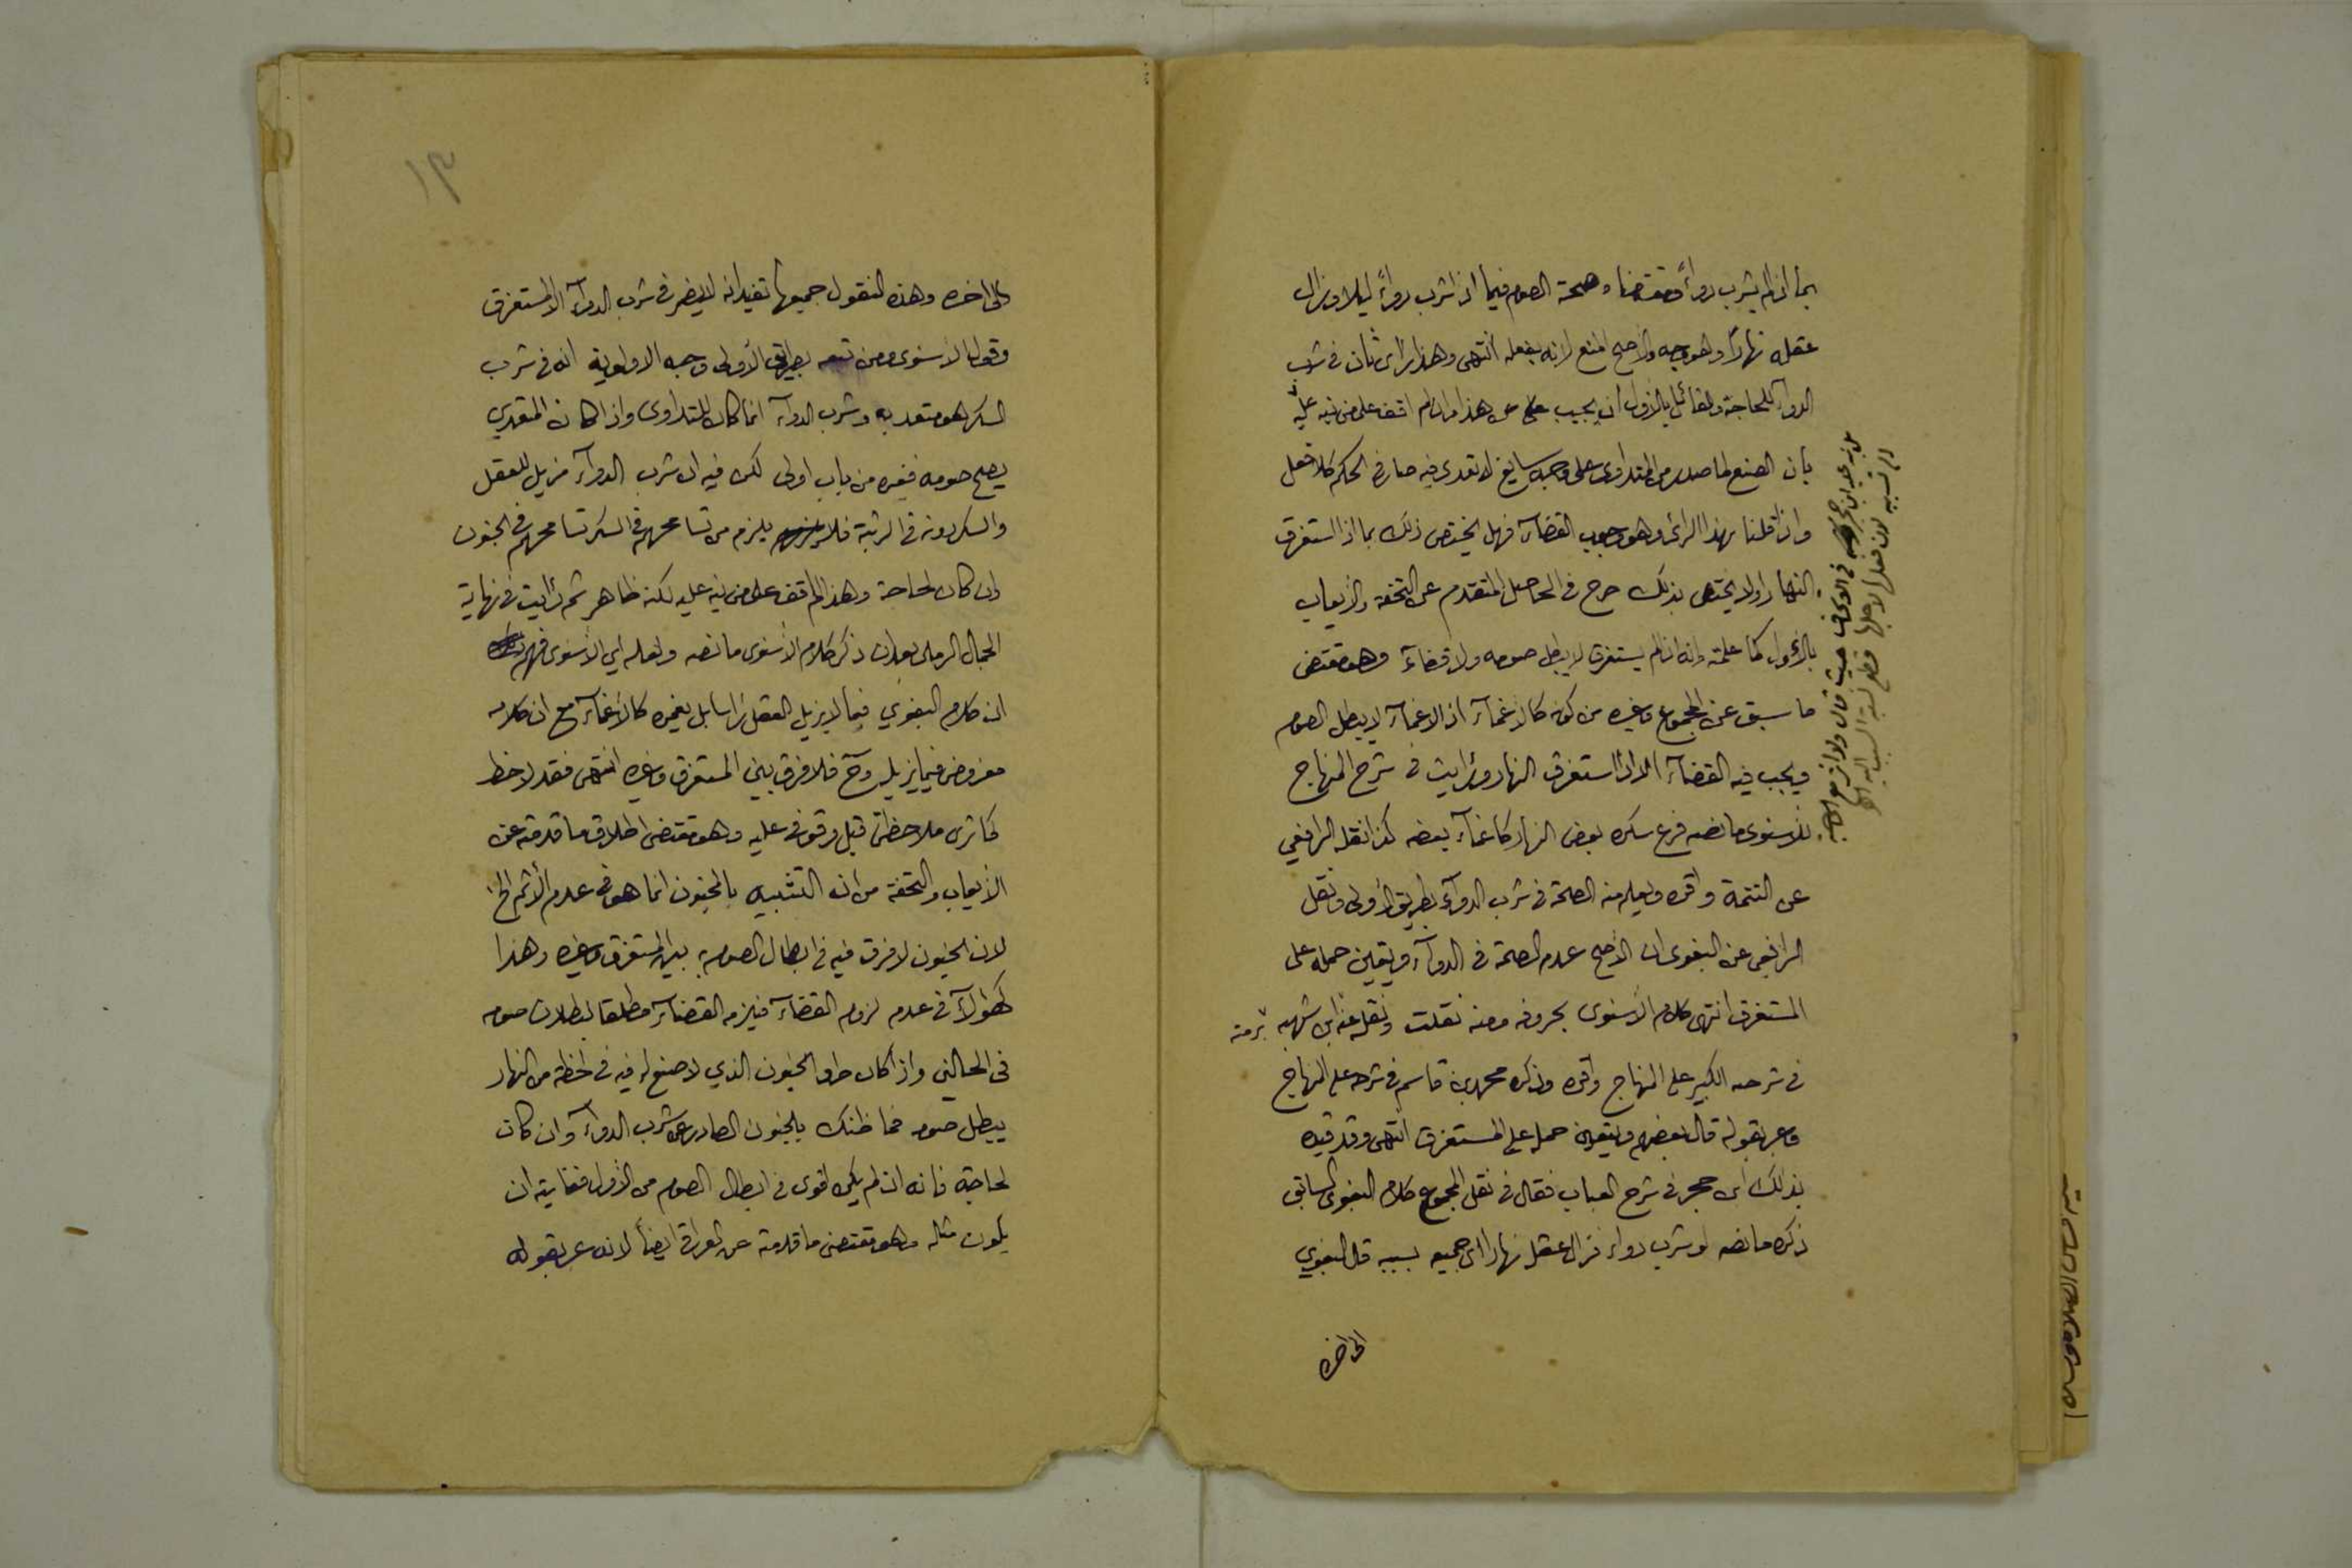 بما اذا لم يشرب دواءً فمقتضاه صحة الصوم فيما اذا شرب دواءً ليلا وزال
عقله نهارًا وهو وجه والأصح المنع لانه بفعله انتهى وهذا رأي ثان في شرب
الدواء للحاجة وللقائل بالأول أن يجيب عن هذا وان لم اقف على من نبه عليه
بأن الصنع لما صدر من المتداوى على وجه سايغ لا تعدى فيه صار في الحكم كلا فعل
واذا قلنا بهذا الرأى وهو وجوب القضاء فهل يختص ذلك بما اذا استغرق
النهار اولا يختص بذلك جرى في الحاصل المتقدم عن التحفة والايعاب
بالأول كما علمته وانه اذا لم يستغرق لا يبطل صومه ولا قضاء وهو مقتضى
ما سبق عن المجموع وغيره من كونه كالاغماء اذ الاغماء لا يبطل الصوم
ويجب فيه القضاء الا اذا استغرق النهار ورأيت في شرح المنهاج
للأسنوى ما نصه فرع سكره بعض النهار كاغماء بعضه كذا نقله الرافعي
عن التتمة واقره ويعلم منه الصحة في شرب الدواء بطريق الأولى ونقل
الرافعى عن البغوى ان الأصح عدم الصحة في الدواء ويتعين حمله على
المستغرق انتهى كلام الاسنوى بحروفه ومنه نقلت ونقله عنه ابن شهبه برمته
في شرحه الكبير على المنهاج واقره وذكره محمد بن قاسم في شرحه على المنهاج
وعبر بقوله قال بعضهم ويتعين حمله على المستغرق انتهى وقد قيده
بذلك ابن حجر في شرح العباب فقال في نقل المجموع كلام البغوى السابق
ذكره ما نصه لو شرب دواء فزال عقله نهارا اى جميعه بسببه قال البغوي
الى اخره
حيث قال ولا نزع
لان فعله لاجلها قطع نسبة السبب اليه
١٣
الى اخره وهذه النقول جميعها تفيد انه لا يضر في شرب الدواء الا المستغرق
وقول الاسنوى ومن تبعه بطريق الأولى وجه الاولوية انه في شرب
السكر هو متعد به وشرب الدواء انما كان للتداوى واذا كان المتعدي
يصح صومه فغيره من باب اولى لكن فيه ان شرب الدواء مزيل للعقل
والسكر دونه في الرتبة فلا يلزم من تسامحهم في السكر تسامحهم في الجنون
وان كان لحاجة وهذا لم اقف على من نبه عليه لكنه ظاهر ثم رأيت في نهاية
الجمال الرملى بعد ان ذكر كلام الاسنوى ما نصه ولعله اي الاسنوى فهم
ان كلام البغوي فيما لا يزيل العقل رأسا بل يغمره كالاغماء مع ان كلامه
مفروض فيما يزيله وح فلا فرق بين المستغرق وغيره انتهى فقد لاحظ
كما ترى ملاحظتى قبل وقوفى عليه وهو مقتضى اطلاق ما قدمته عن
الايعاب والتحفة من ان التشبيه بالمجنون انما هو في عدم الأثم الخ
لان الجنون لا فرق فيه في ابطال الصوم به بين المستغرق وغيره وهذا
في عدم لزوم القضاء فيلزمه القضاء مطلقا لبطلان صومه
في الحالين واذا كان طرو الجنون الذي لا صنع له فيه في لحظة من النهار
يبطل صومه فما ظنك بالجنون الصادر عن شرب الدواء وان كان
لحاجة فانه ان لم يكن اقوى في ابطال الصوم من الأول فغايته ان
يكون مثله وهو مقتضى ما قدمته عن العراقى ايضاً لانه عبر بقوله